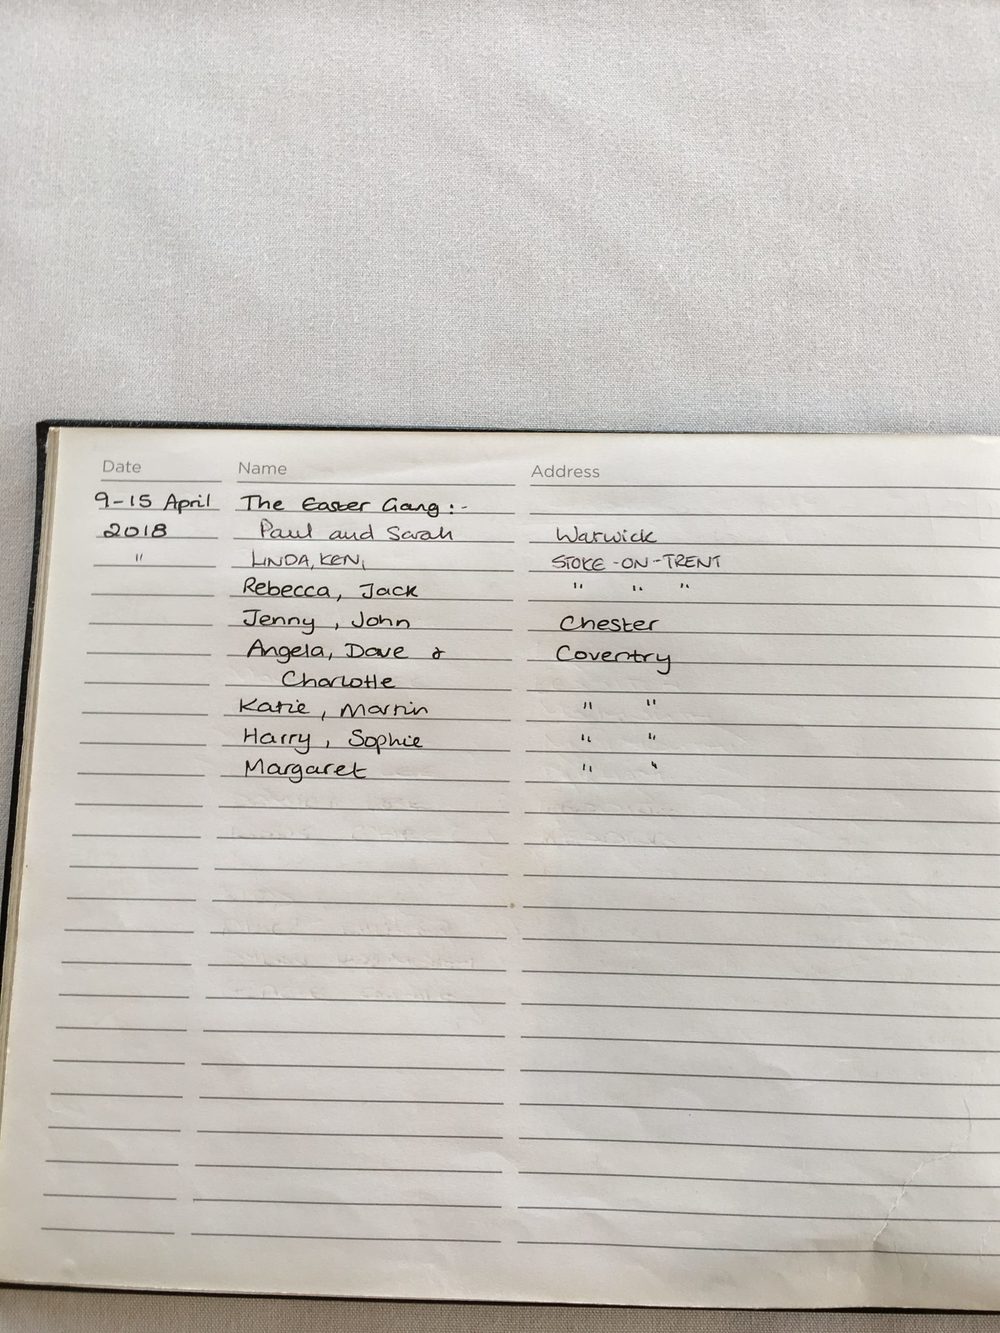 Date Name Address
9-15 April The Easter Gang:-
2018 Paul and Sarah Warwick
" LINDA, KEN, STOKE-ON-TRENT
Rebecca, Jack " " "
Jenny, John Chester
Angela, Dave & Coventry
Charlotte
Katie, Martin " "
Harry, Sophie " "
Margaret " "